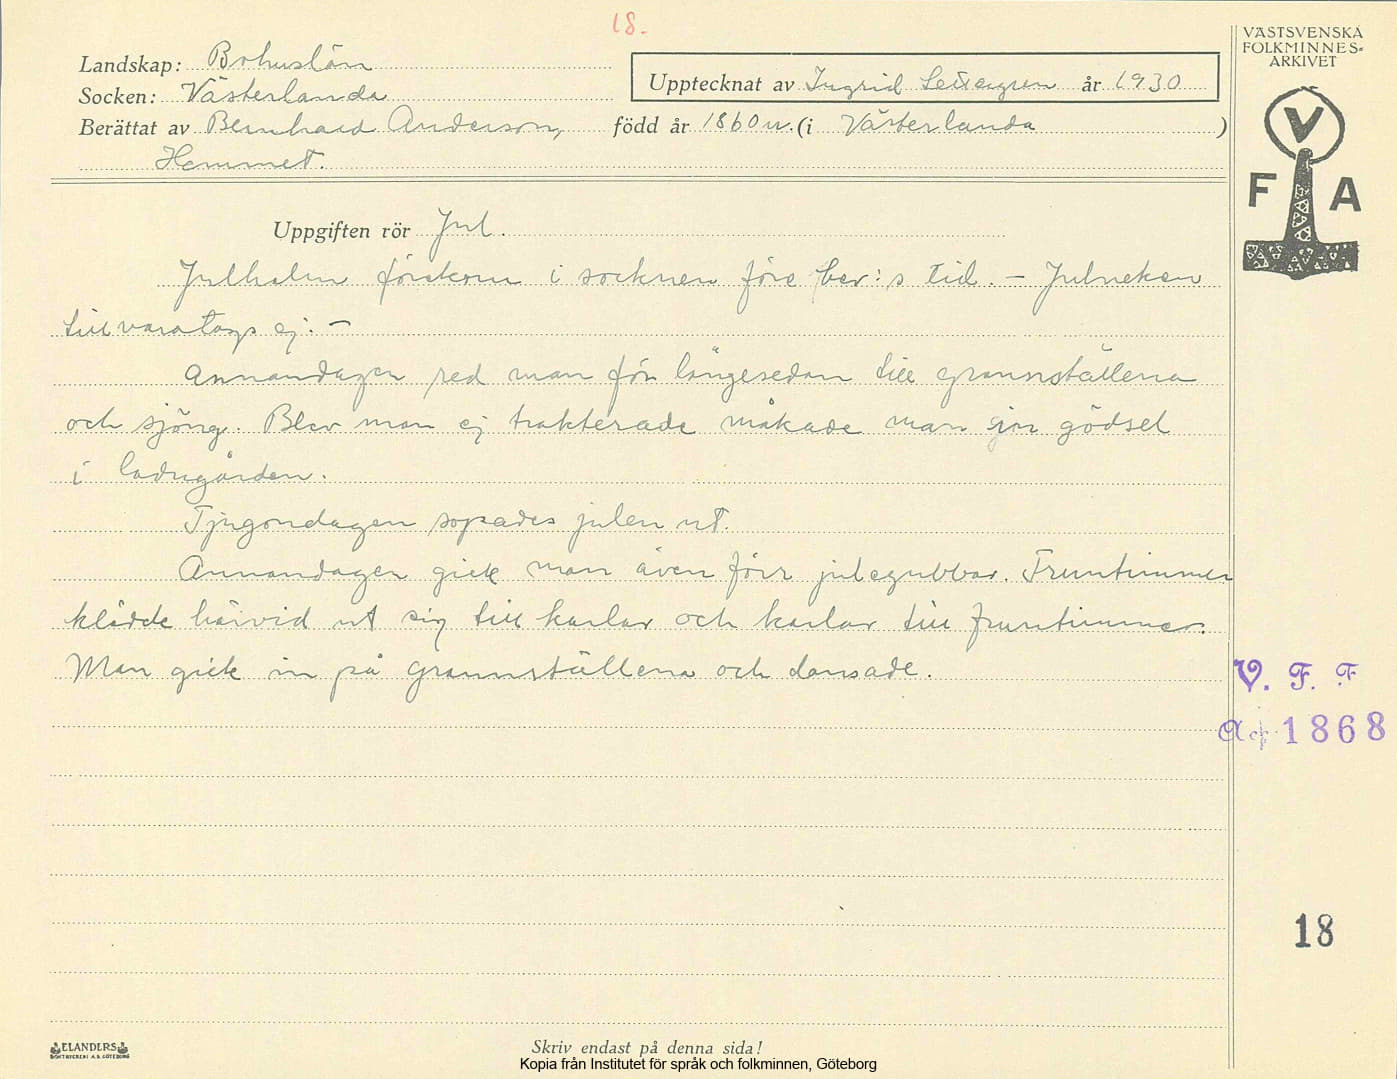 18.
VÄSTSVENSKA
FOLKMINNES-
ARKIVET
Landskap: Bohuslän
Upptecknat av Ingrid år 1930
Socken: Västerlanda
Berättat av Bernhard Anderson, född år 1860 (i Västerlanda )
Hemmet.
V
F A
Uppgiften rör Jul.
Julhalm förekom i socknen före ber:s tid. – Julneken
tillvaratogs ej. –
Annandagen red man för längesedan till grannställena
och sjöng. Blev man ej trakterade måkade man gödsel
i ladugården.
Tjugondagen sopades julen ut.
Annandagen gick man även förr julegubbar. Fruntimmer
klädde härvid ut sig till karlar och karlar till fruntimmer.
Man gick in på grannställena och dansade.
V. F. F
1868
18
ELANDERS
BOKTRYCKERI A.B. GÖTEBORG
Skriv endast på denna sida!
Kopia från Institutet för språk och folkminnen, Göteborg